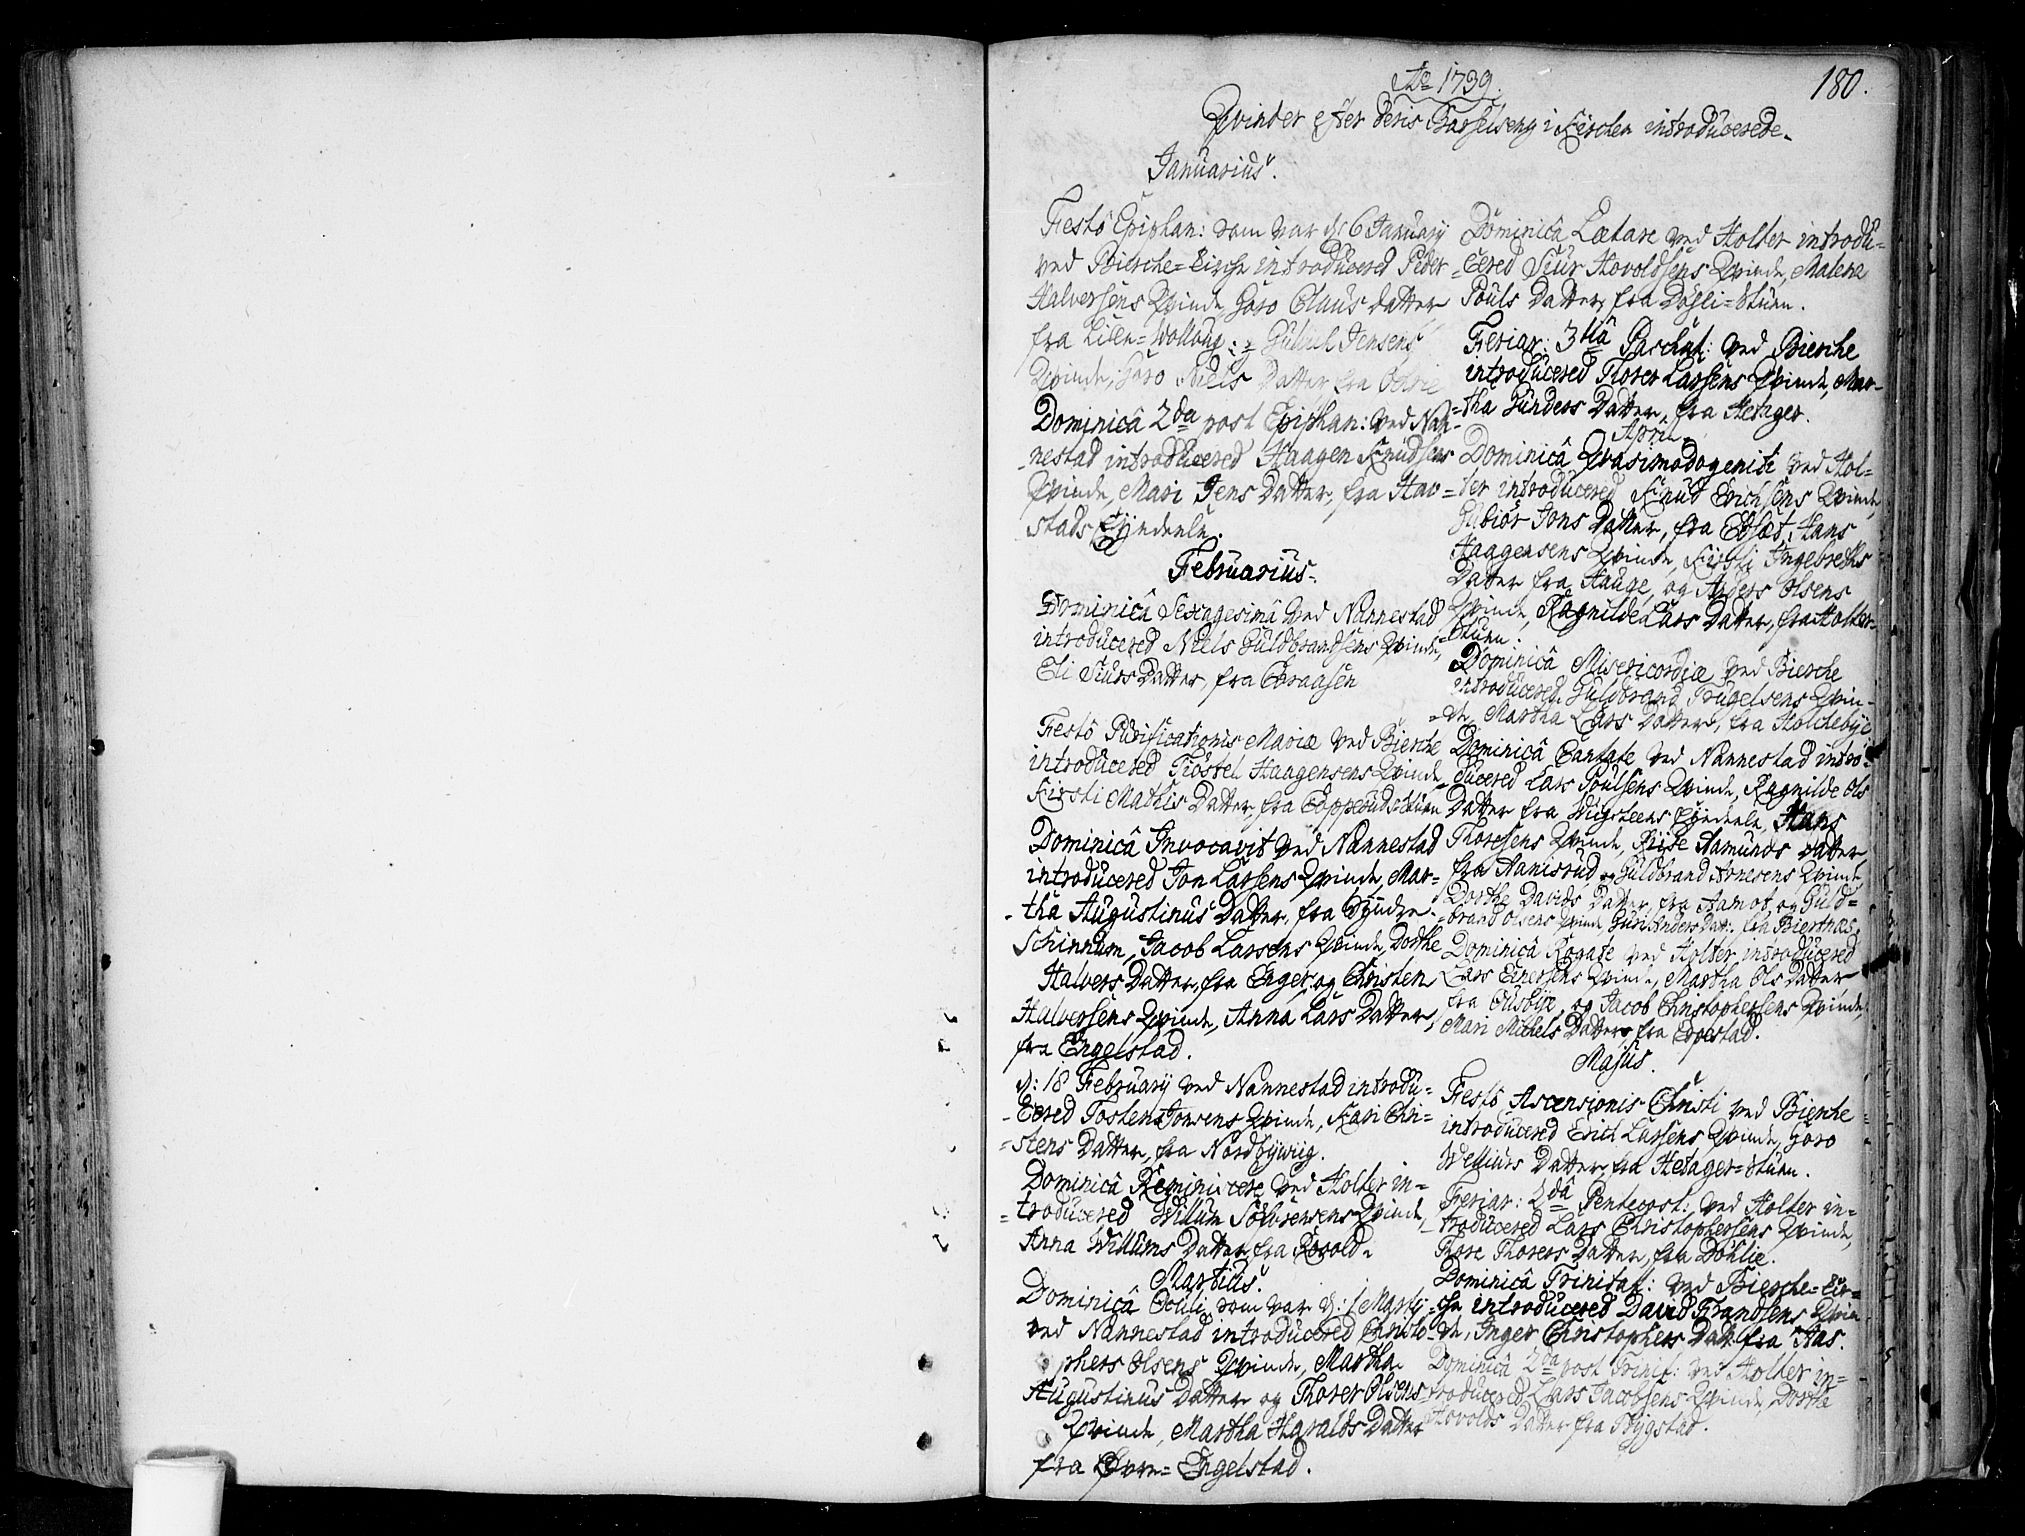 Ao 1739.
180.
Qvinder efter deris Barselseng i Kirchen introducerede.
Januarius.
Festô Epiphan: som var d: 6 January
ved Bierche=Kirche introducered Peder
Halversens Qvinde Goro Claus datter
fra Lille=Wollaug: og Gulich Jensens
Qvinde, Goro Niels Datter fra
Dominicâ 2da post Epiphan: ved Nan-
-nestad introducered Haagen Knudsens
Qvinde, Mari Jens Datter, fra Hav-
stads Eyendele.
Februarius.
Dominicâ Sexagesimâ ved Nannestad
introducered Niels Guldbrandsens Qvinde,
Eli Siurs Datter, fra Braasen
Festô Purificationis Mariæ ved Bierche
introducered Tröstel Haagensens Qvinde
Kirsti Mathis Datter, fra Copperudstuen
Dominicâ Invocavit ved Nannestad
introducered Jon Larsens Qvinde, Mar-
-tha Augustinus Datter, fra Syndre
Schinnum, Jacob Larsens Qvinde, Dorthe
Halvers Datter, fra Enger, og Christen
Halversens Qvinde, Anna Lars Datter,
fra Engelstad.
d: 18 February ved Nannestad introdu-
-cered Tosten Jonsens Qvinde, Kari Chri-
-stens Datter, fra Nordbywiig.
Dominicâ Reminiscere ved Holter in-
-troducered Willum Solversens Qvinde,
Anna Willums Datter, fra Rosold.
Martius.
Dominicâ Oculi, som var d: 1 Martij
ved Nannestad introducered Christo-
phers Olsens Qvinde, Martha
Augustinus Datter og Thorer Olsens
Qvinde, Martha Haralds Datter
fra Øvre=Engelstad.
Dominicâ Lætare ved Holter introdu-
-cered Siur Hovoldsens Qvinde, Malena
Pouls Datter, fra Døhli=stuen.
Feriar: 3tiâ Paschat: ved Bierche
introducered Thorer Larsens Qvinde, Mar-
-tha Gunders Datter, fra Hetager.
April
Dominicâ Qvasimodogeniti ved Hol-
-ter introducered Knud Erichsens Qvinde,
Gubiör Jons Datter, fra Ebsæt, Hans
Haagensens Qvinde, Kirsti Ingebreths
Datter fra Hauge, og Anders Olsens
Qvinde, Ragnilde Lars Datter, fra Holter-
-stuen.
Dominicâ Misericordiæ ved Bierche
introducered Guldbrand Trugelsens Qvin-
-de, Martha Lars Datter, fra Holchebye
Dominicâ Cantate ved Nannestad intro-
-ducered Lars Poulsens Qvinde, Ragnilde Ols
Datter fra Wigsteens Eyendele, Hans
Thoresens Qvinde, Riise Aamunds datter,
fra Aanisrud, og Guldbrand Arnesens Qvinde
Dorthe Davids Datter, fra Aamot og Guld-
-brand Olsens Qvinde, Guri Anders Datt: fra Biertnæs.
Dominicâ Rogate ved Holter introducered
Lars Einersens Qvinde, Martha Ols Datter
fra Ousbye, og Jacob Christophersens Qvinde,
Mari Michels Datter, fra Eppestad.
Majus.
Festô Ascensionis Christi ved Bierche
introducered Erich Larsens Qvinde, Goro
Wellius Datter, fra Hetager=stuen.
Feriar: 2dâ Pentecost: ved Holter in-
-troducered Lars Christophersens Qvinde,
Thore Thorers Datter, fra Döhlie.
Dominicâ Trinitat: ved Bierche=Kir-
-che introducered David Frandsens Qvin
-de, Inger Christophers Datt: fra Aas.
Dominicâ 2da post Trinit: ved Holter in-
-troducered Lars Jacobsens Qvinde, Dorthe
Hovolds Datter fra Bygstad.